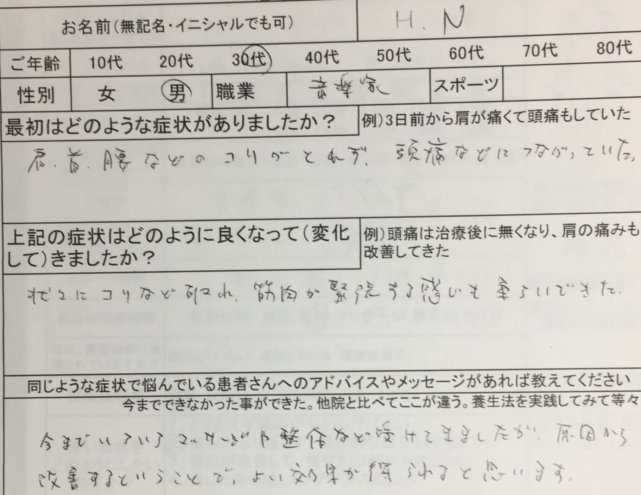 お名前(無記名・イニシャルでも可) H.N
ご年齢 10代 20代 30代 40代 50代 60代 70代 80代
性別 女 男 職業 音楽家 スポーツ
最初はどのような症状がありましたか? 例)3日前から肩が痛くて頭痛もしていた
肩、首、腰などのコリがとれず、頭痛などにつながっていた。
上記の症状はどのように良くなって(変化して)きましたか? 例)頭痛は治療後に無くなり、肩の痛みも改善してきた
状々にコリなど取れ、筋肉が緊張する感じも柔らいできた。
同じような症状で悩んでいる患者さんへのアドバイスやメッセージがあれば教えてください
今までできなかった事ができた。他院と比べてここが違う。養生法を実践してみて等々
今までいろいろマッサージや整体など受けてきましたが、原因から
改善するということで、よい効果が得られると思います。